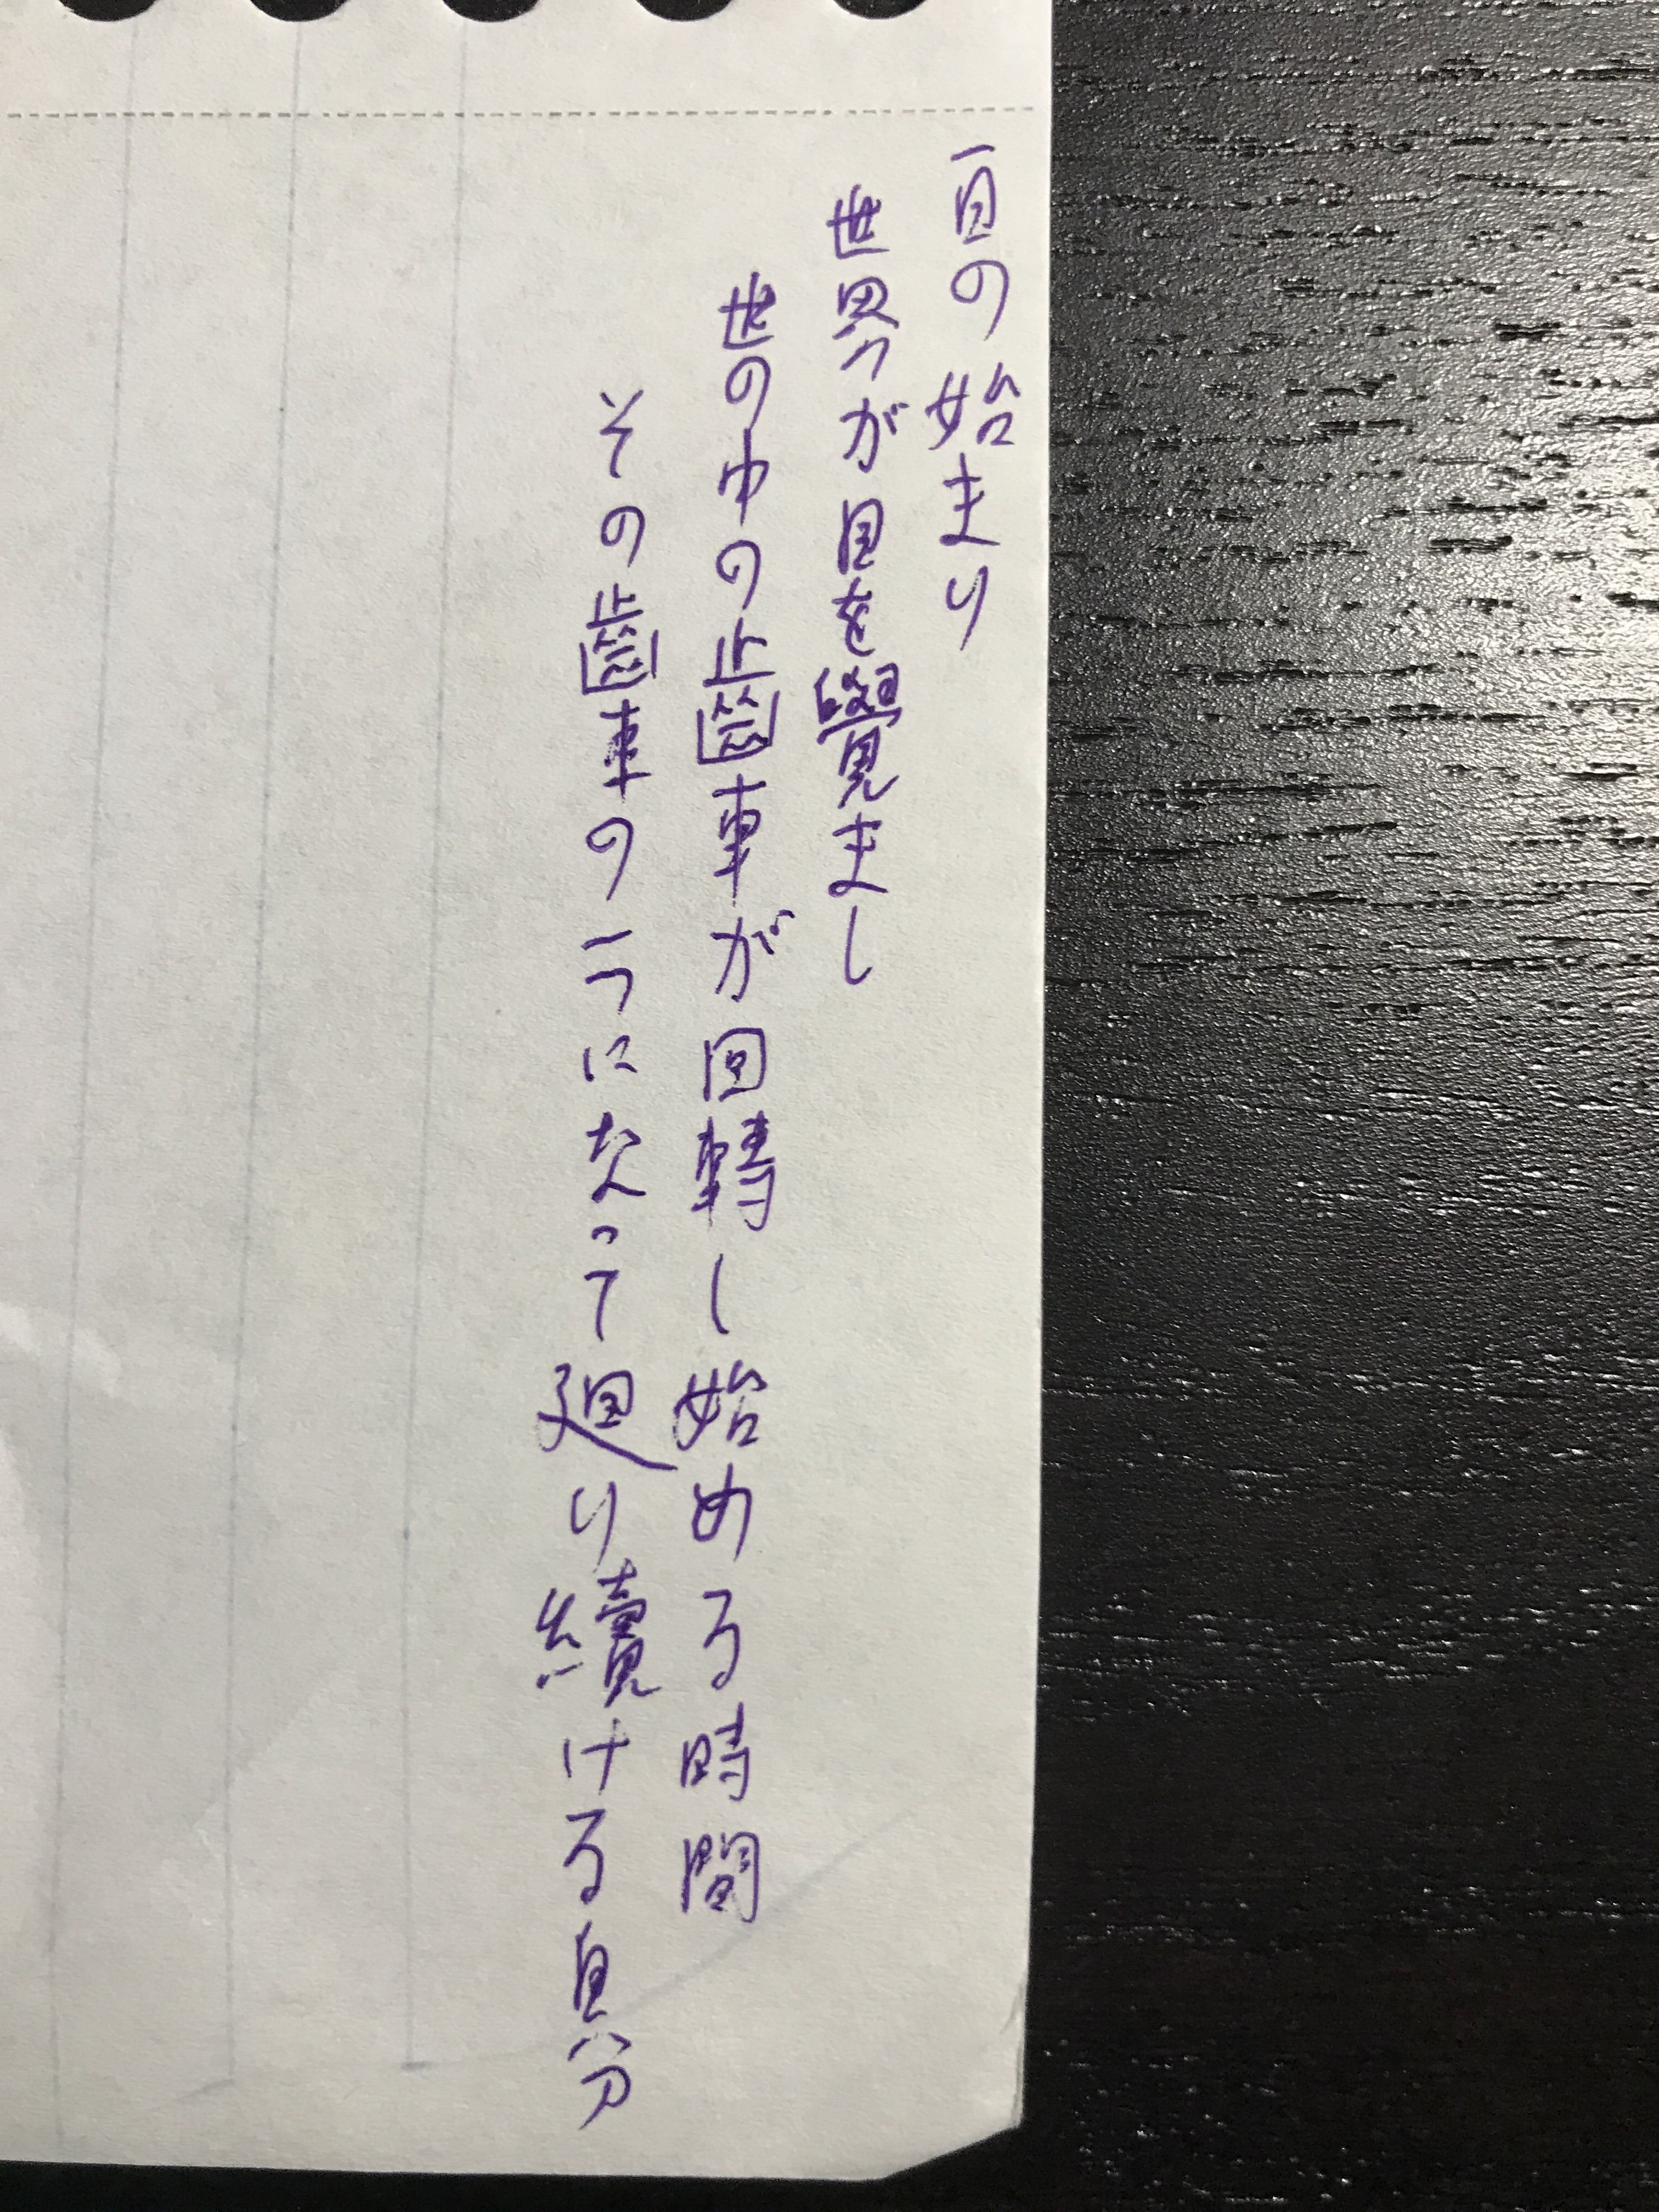 一日の始まり
世界が目を覺まし
世の中の齒車が回轉し始める時間
その齒車の一つになって廻り續ける自分